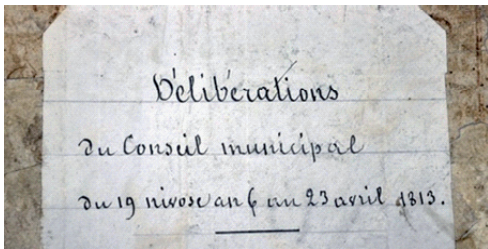 Délibérations
du Conseil municipal
du 19 nivose an 6 au 23 avril 1813.